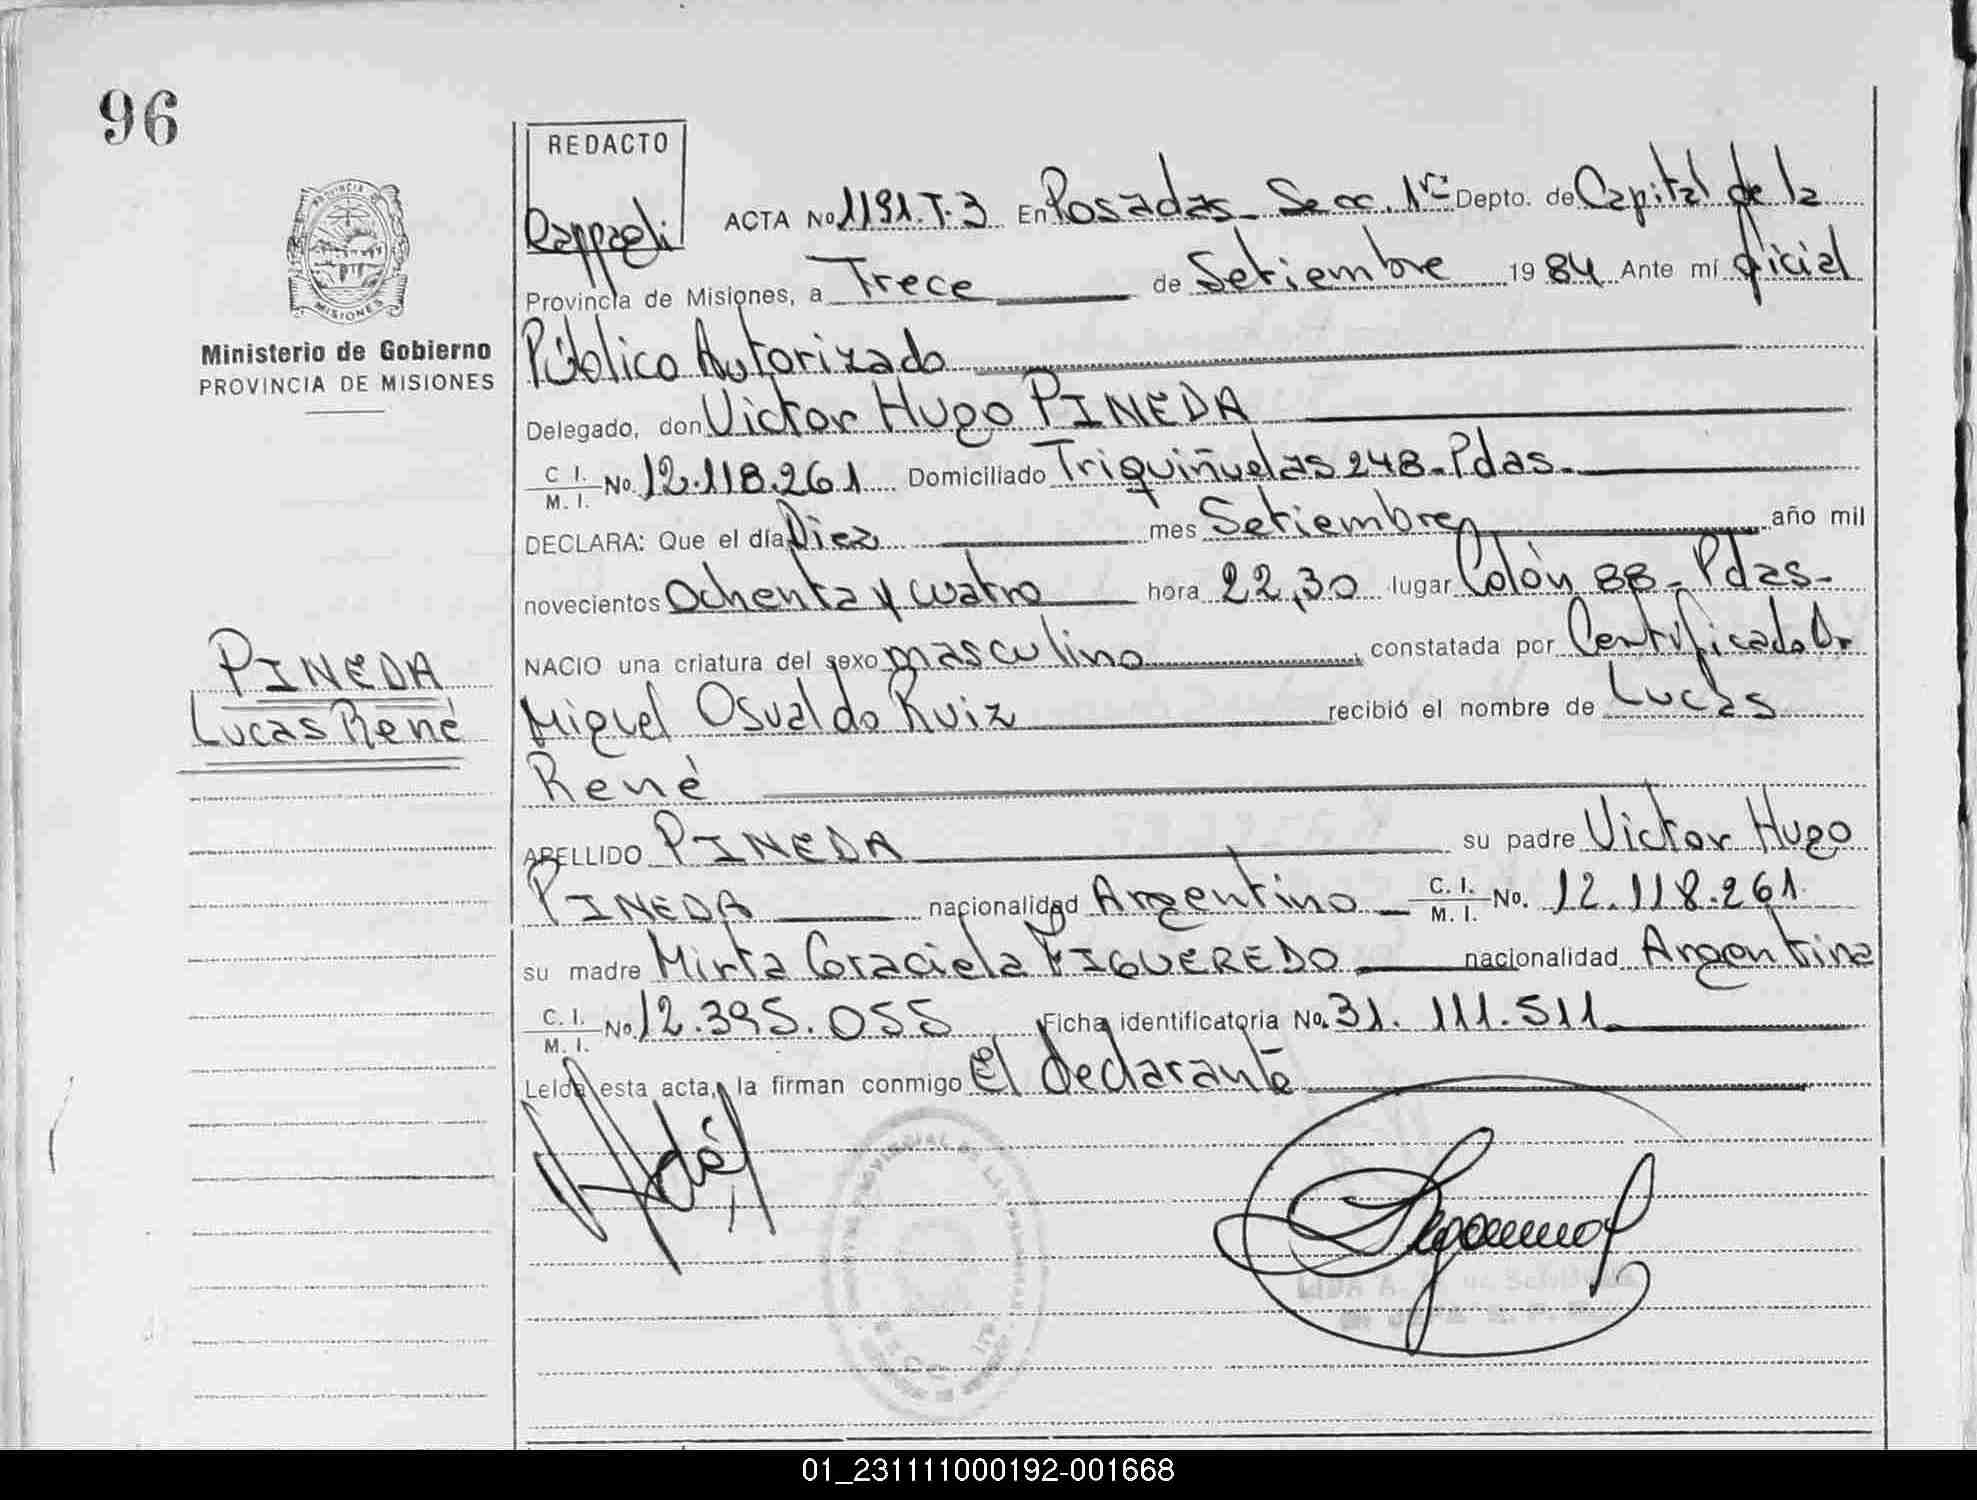 96
REDACTO
ACTA No 1191.T.3 En Posadas - Secc. 1ra Depto. de Capital de la
Provincia de Misiones, a Trece de Setiembre 19 84 Ante mí oficial
PROVINCIA
MISIONES
Ministerio de Gobierno
PROVINCIA DE MISIONES
Público Autorizado
Delegado, don Victor Hugo PINEDA
C. I. M. I. No. 12.118.261 Domiciliado Triquiñuelas 248 - Pdas.
DECLARA: Que el día Diez mes Setiembre año mil
novecientos Ochenta y cuatro hora 22,30 lugar Colón 88 - Pdas -
NACIO una criatura del sexo masculino, constatada por Certificado Dr
PINEDA
Lucas René
Miguel Osvaldo Ruiz recibió el nombre de Lucas
René
APELLIDO PINEDA su padre Victor Hugo
PINEDA nacionalidad Argentino C. I. M. I. No. 12.118.261
su madre Mirta Graciela FIGUEREDO nacionalidad Argentina
C. I. M. I. No. 12.395.055 Ficha identificatoria No. 31.111.511
Leída esta acta, la firman conmigo El declarante
01_231111000192-001668